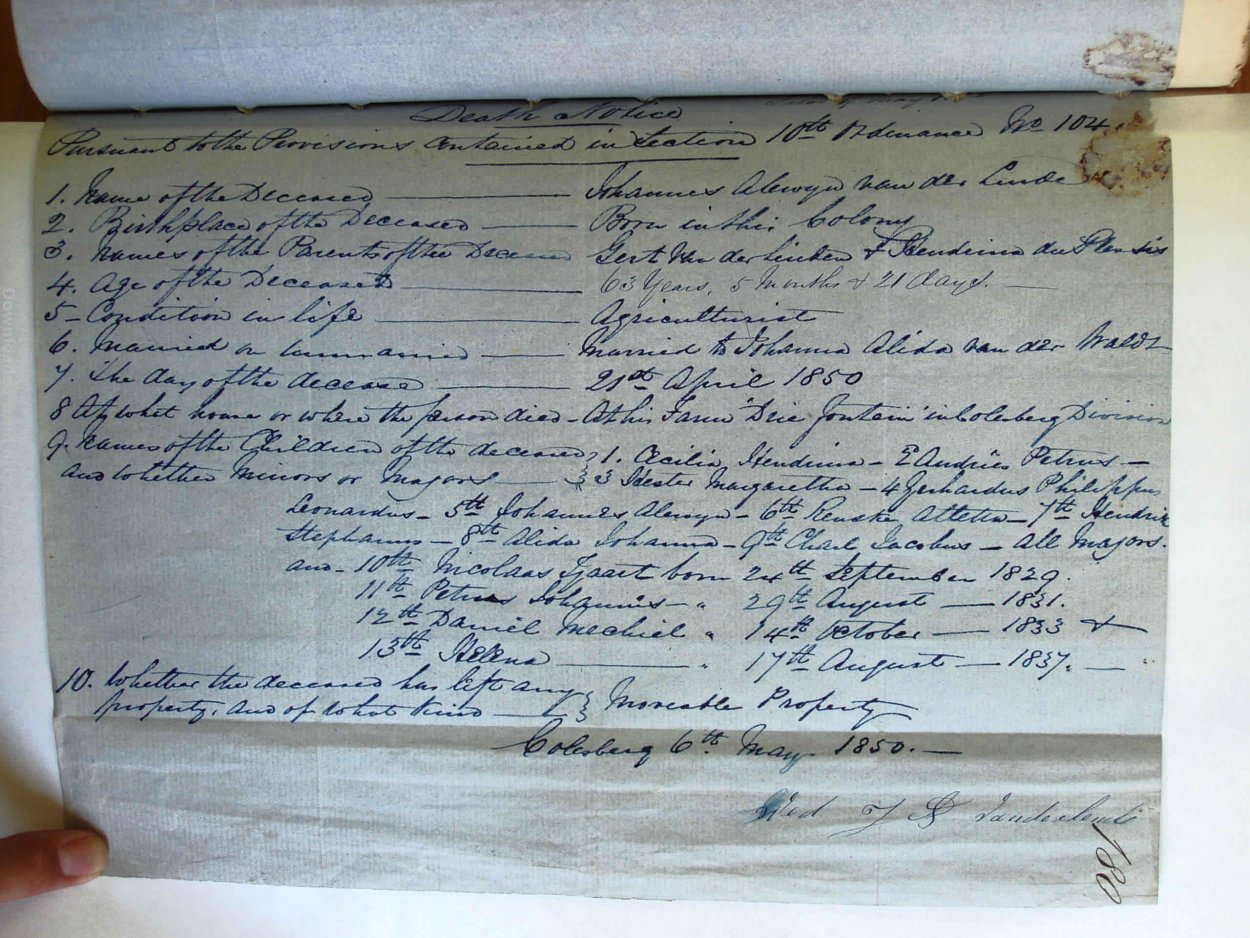 Death Notice
Pursuant to the Provisions Contained in Section 10th Ordinance No 104.
1. Name of the Deceased — Johannes Alewyn van der Linde
2. Birthplace of the Deceased — Born in this Colony
3. Names of the Parents of the Deceased Gert van der Linden & Hendrina du Plessis
4. Age of the Deceased — 63 Years, 5 Months & 21 days. —
5 - Condition in life — Agriculturist
6. Married or unmarried — Married to Johanna Alida van der Waldt
7. The day of the decease — 21st April 1850
8 At what house or where the person died - At his Farm "Drie fontein" in Colesberg Division
9. Names of the Children of the deceased } 1. Cecilia Hendrina - 2 Andries Petrus -
and whether Minors or Majors — } 3 Hester Margaretha - 4 Gerhardus Philippus
Leonardus - 5th Johannes Alewyn - 6th Renske Alletta - 7th Hendrik
Stephanus - 8th Alida Johanna - 9th Charl Jacobus - All Majors.
and - 10th Nicolaas Tjaart born 24th September 1829.
11th Petrus Johannis - " 29th August — 1831.
12th Daniel Mechiel " 14th October — 1833 &
13th Helena — " 17th August — 1837. —
10. Whether the deceased has left any } Moveable Property
property, and of what kind — }
Colesberg 6th May 1850. —
Wed J A Vanderlinde
180